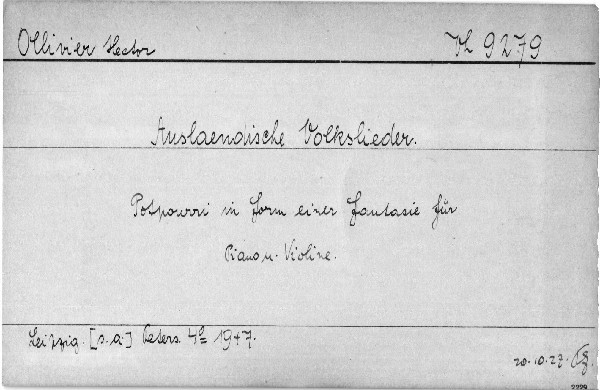 Ollivier Hector
9279
Auslaendische Volkslieder.
Potpourri in form einer fantasie für
Piano u. Violine.
Leipzig. [s.a.] Peters. 4º 19+7.
20.10.27.